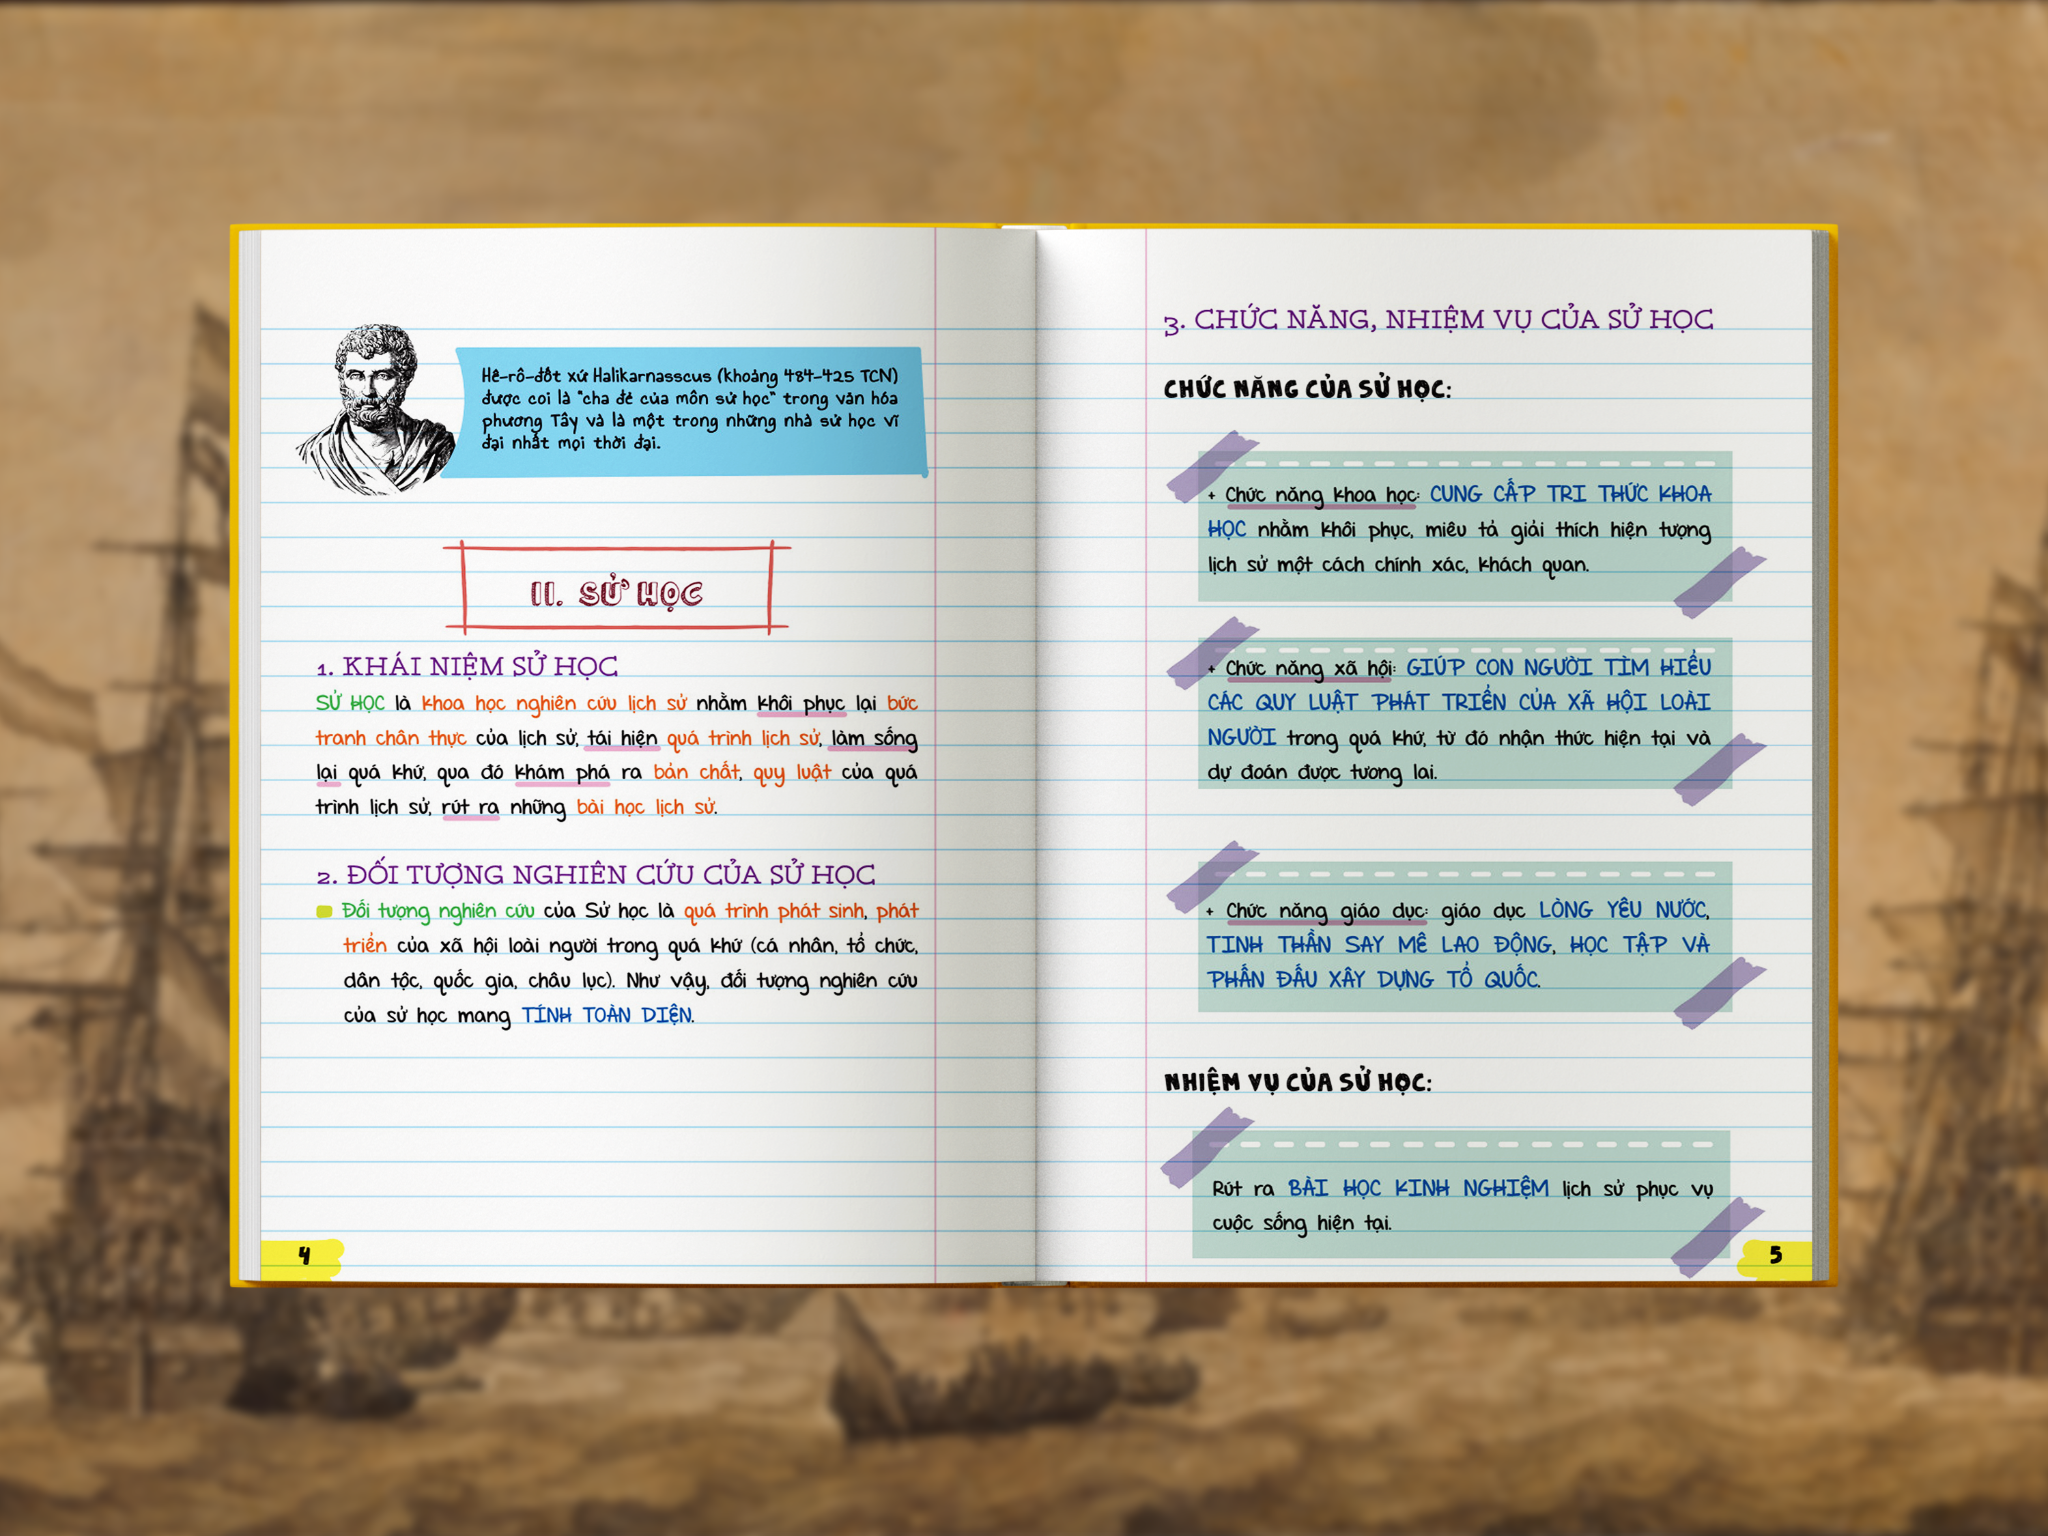 Hê-rô-đốt xứ Halikarnasscus (khoảng 484-425 TCN)
được coi là "cha đẻ của môn sử học" trong văn hóa
phương Tây và là một trong những nhà sử học vĩ
đại nhất mọi thời đại.
II. SỬ HỌC
1. KHÁI NIỆM SỬ HỌC
SỬ HỌC là khoa học nghiên cứu lịch sử nhằm khôi phục lại bức
tranh chân thực của lịch sử, tái hiện quá trình lịch sử, làm sống
lại quá khứ, qua đó khám phá ra bản chất, quy luật của quá
trình lịch sử, rút ra những bài học lịch sử.
2. ĐỐI TƯỢNG NGHIÊN CỨU CỦA SỬ HỌC
Đối tượng nghiên cứu của Sử học là quá trình phát sinh, phát
triển của xã hội loài người trong quá khứ (cá nhân, tổ chức,
dân tộc, quốc gia, châu lục). Như vậy, đối tượng nghiên cứu
của sử học mang TÍNH TOÀN DIỆN.
4
3. CHỨC NĂNG, NHIỆM VỤ CỦA SỬ HỌC
CHỨC NĂNG CỦA SỬ HỌC:
+ Chức năng khoa học: CUNG CẤP TRI THỨC KHOA
HỌC nhằm khôi phục, miêu tả giải thích hiện tượng
lịch sử một cách chính xác, khách quan.
+ Chức năng xã hội: GIÚP CON NGƯỜI TÌM HIỂU
CÁC QUY LUẬT PHÁT TRIỂN CỦA XÃ HỘI LOÀI
NGƯỜI trong quá khứ, từ đó nhận thức hiện tại và
dự đoán được tương lai.
+ Chức năng giáo dục: giáo dục LÒNG YÊU NƯỚC,
TINH THẦN SAY MÊ LAO ĐỘNG, HỌC TẬP VÀ
PHẤN ĐẤU XÂY DỰNG TỔ QUỐC.
NHIỆM VỤ CỦA SỬ HỌC:
Rút ra BÀI HỌC KINH NGHIỆM lịch sử phục vụ
cuộc sống hiện tại.
5